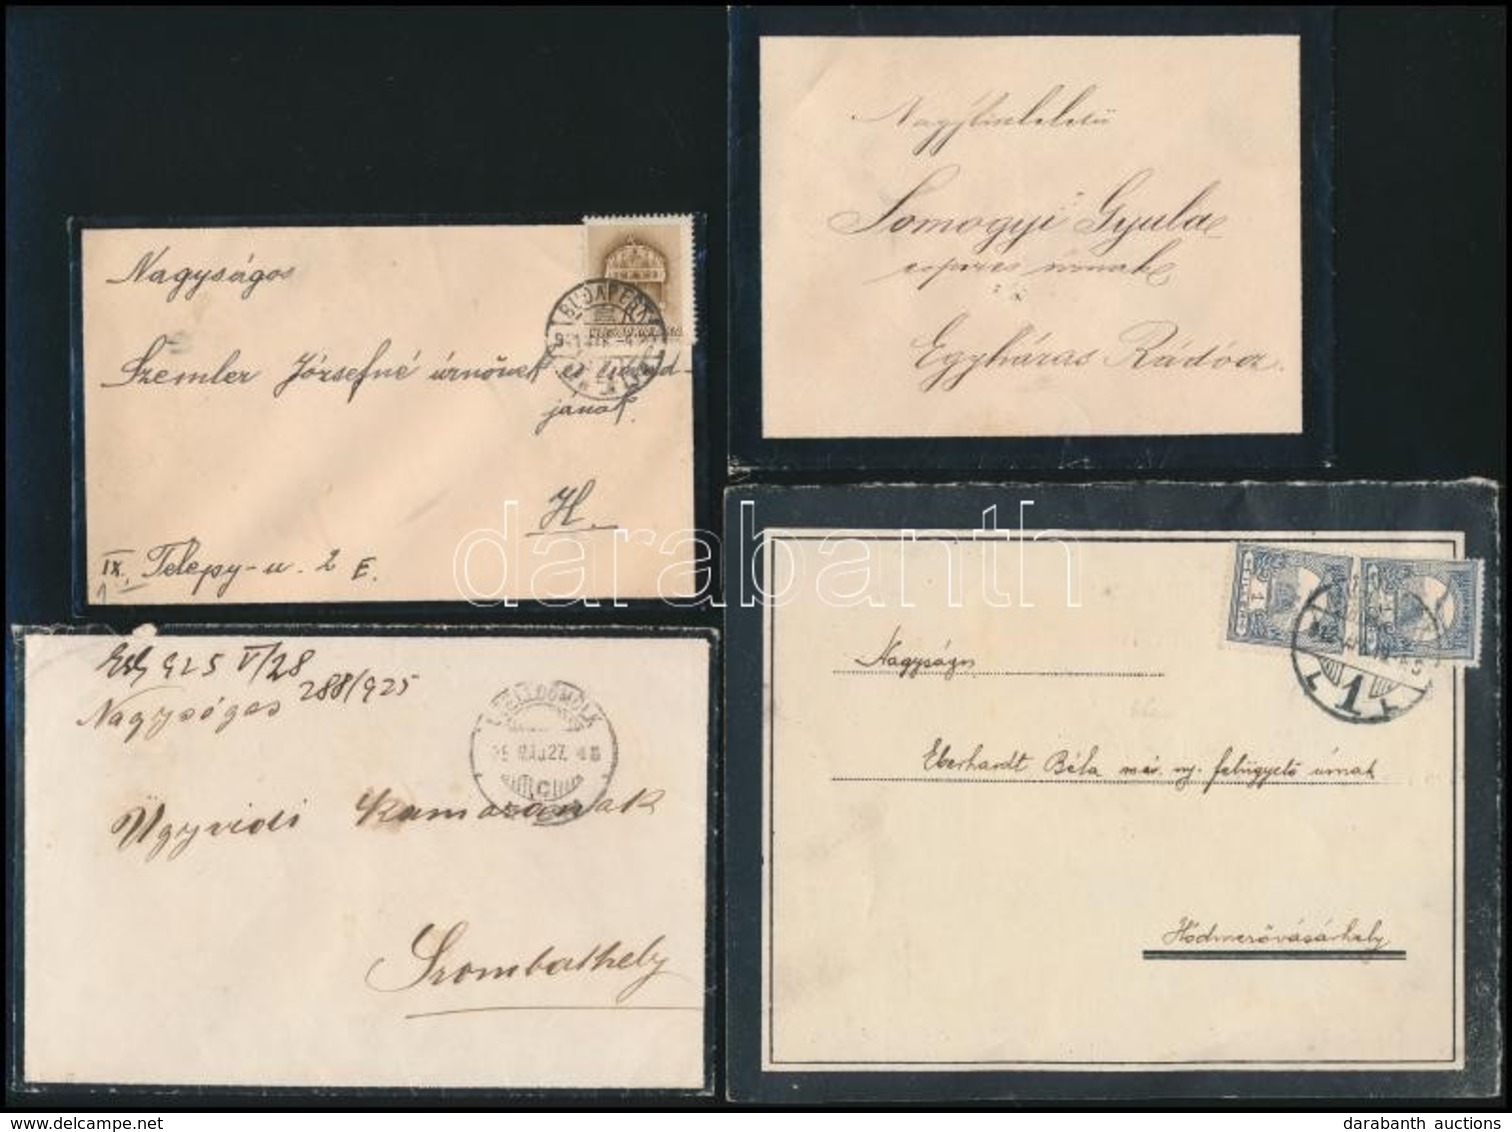 Nagyságos
Szemler Józsefné úrnőnek és család-
jának.
H.
IX. Telepy-u. 2 E.
BUDAPEST
Nagytiszteletű
Somogyi Gyula
esperes úrnak
Egyházas Rádócz
925 V/28
288/925
Nagyságos
CELLDÖMÖLK
Ügyvédi Kamarának
Szombathely
Nagyságos
Eberhardt Béla máv. ny. felügyelő úrnak
Hódmezővásárhely
1
darabanth
darabanth auctions